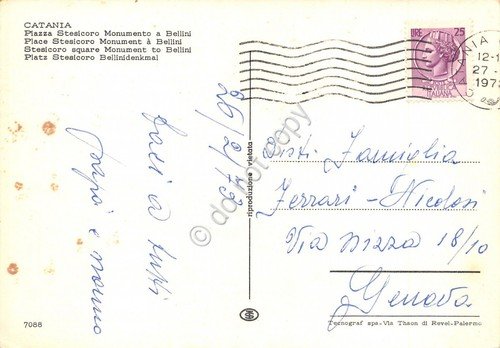 CATANIA
Piazza Stesicoro Monumento a Bellini
Place Stesicoro Monument à Bellini
Stesicoro square Monument to Bellini
Platz Stesicoro Bellinidenkmal
LIRE 25
CATANIA
12-1
27
197
26/2/73
Baci a tutti
papà e nonno
riproduzione vietata
do not copy
Famiglia
Ferrari - Nicolosi
Via Nizza 18/10
Genova
7088
Tecnograf spa-Via Thaon di Revel-Palermo